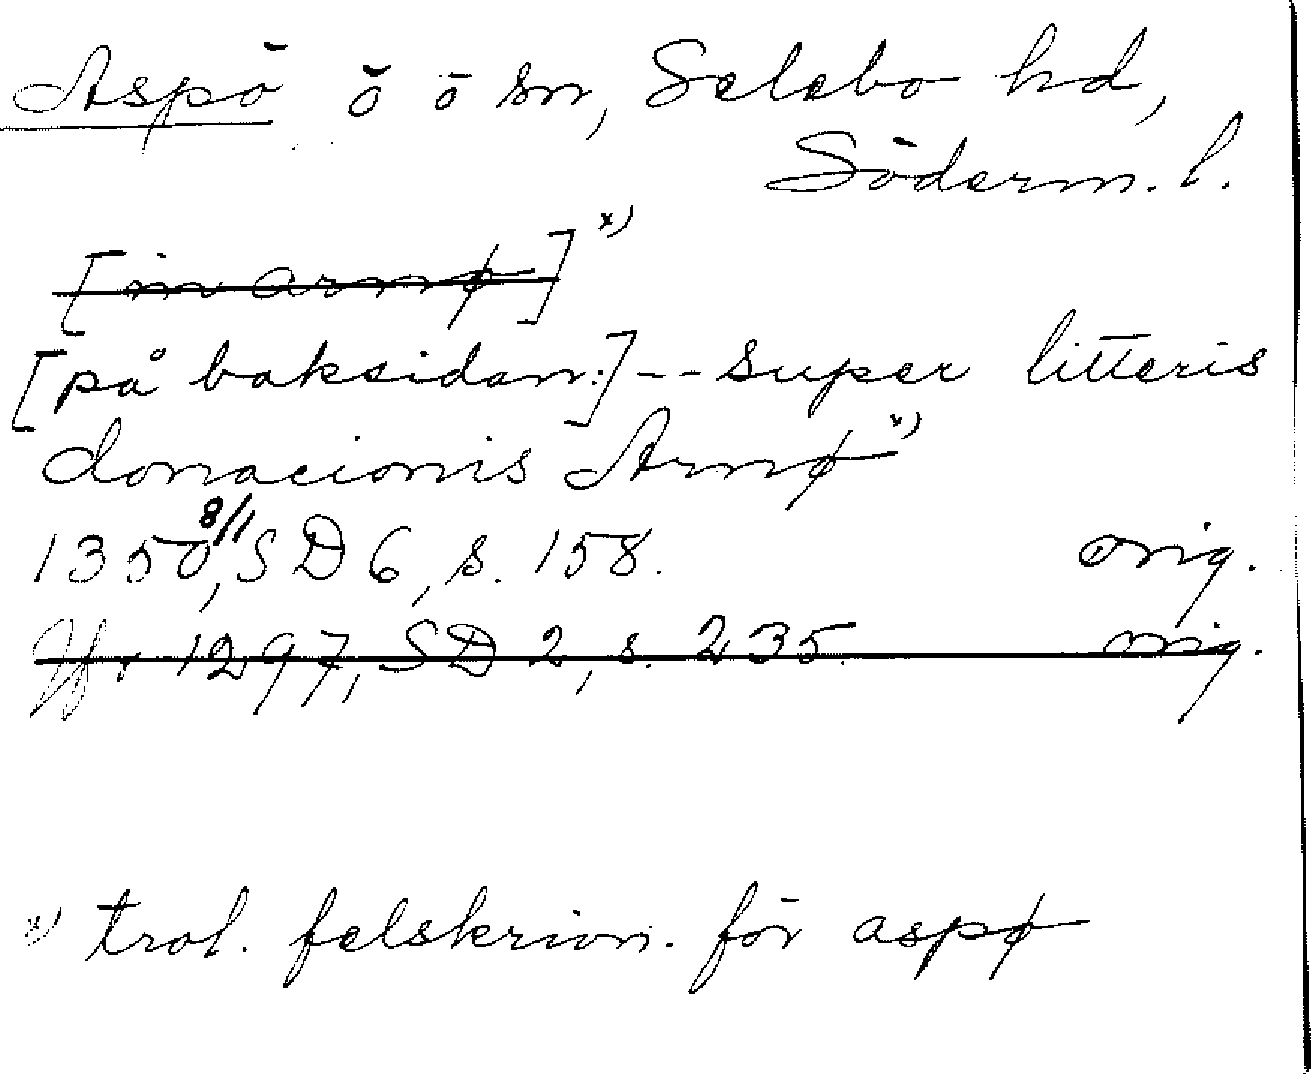 Aspö ö ö sn, Selebo hd,
Söderm. l.
[in arnø] x)
[på baksidan:] -- super litteris
donacionis Arnø x)
1350 8/1, SD 6, s. 158. orig.
1297, SD 2, s. 235. orig.
x) trol. felskrivn. för aspø